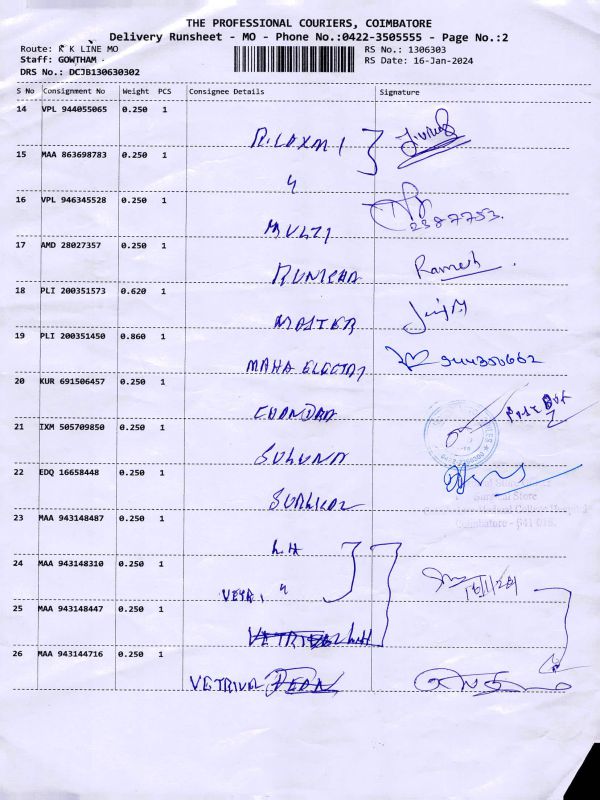 THE PROFESSIONAL COURIERS, COIMBATORE
Delivery Runsheet - MO - Phone No.:0422-3505555 - Page No.:2
Route: R K LINE MO
RS No.: 1306303
Staff: GOWTHAM
RS Date: 16-Jan-2024
DRS No.: DCJB130630302
S No Consignment No Weight PCS Consignee Details Signature
14 VPL 944055065 0.250 1
R.LAXMI
15 MAA 863698783 0.250 1
"
16 VPL 946345528 0.250 1
MULTI
17 AMD 28027357 0.250 1
Ramesh
18 PLI 200351573 0.620 1
MASTER
19 PLI 200351450 0.860 1
MAHA ELECTRI 944350662
20 KUR 691506457 0.250 1
CHANDAN
21 IXM 505709850 0.250 1
SUGUNA
22 EDQ 16658448 0.250 1
SURGICAL
Surgical Store
Coimbatore - 641 018.
23 MAA 943148487 0.250 1
L.H
24 MAA 943148310 0.250 1
"
25 MAA 943148447 0.250 1
26 MAA 943144716 0.250 1
VETRIVEL